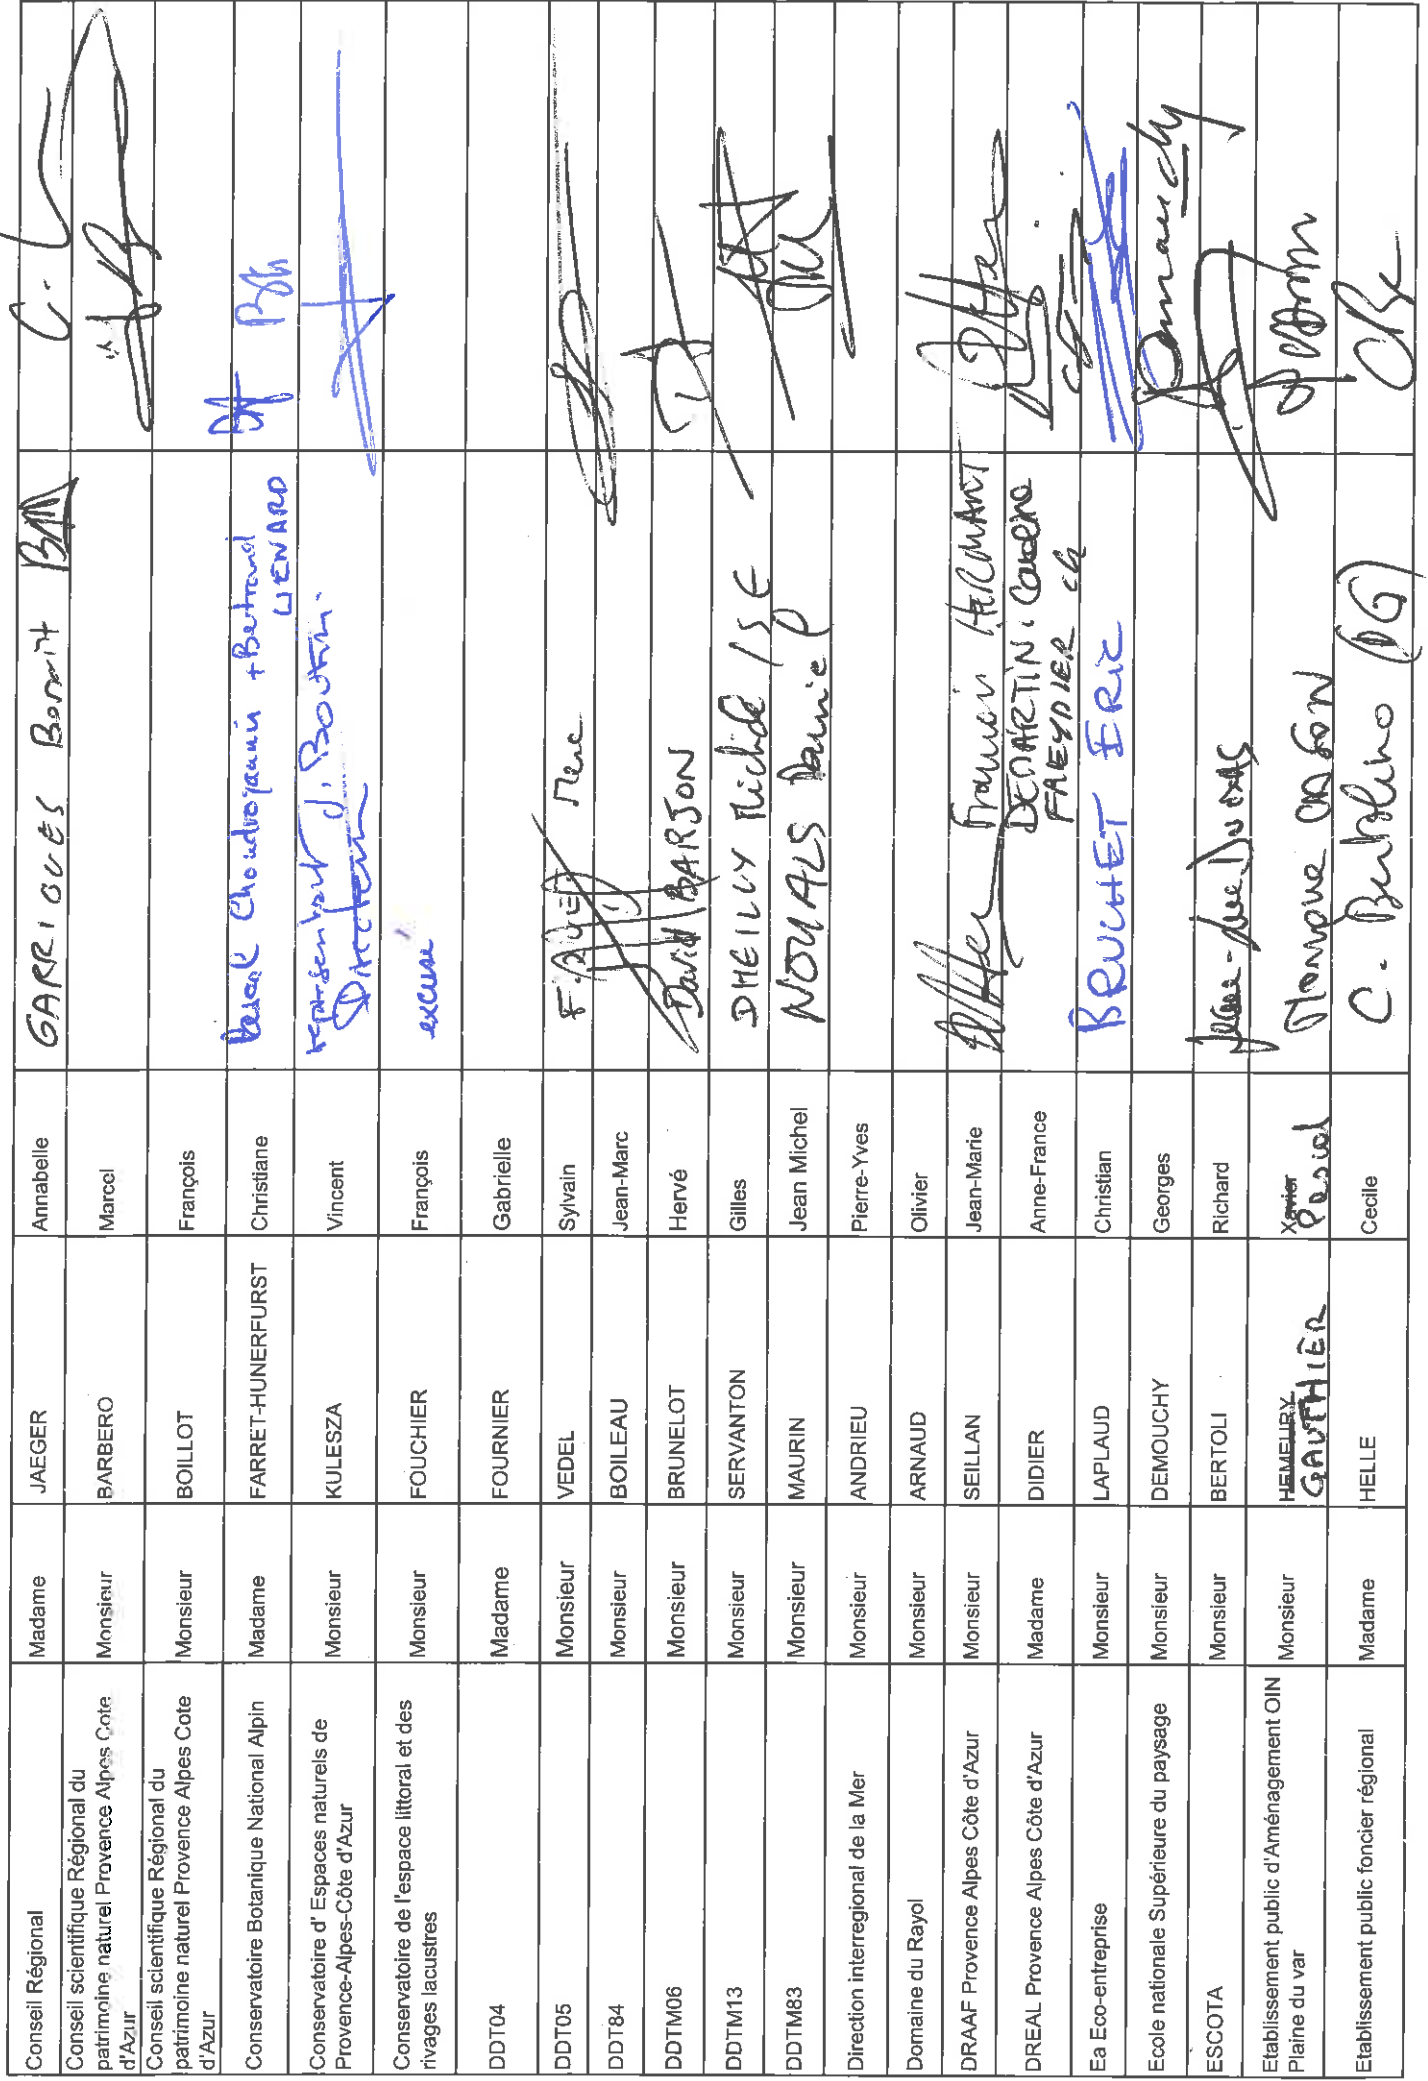 Conseil Régional Madame JAEGER Annabelle GARRIGUES Benoît
Conseil scientifique Régional du
patrimoine naturel Provence Alpes Cote
d'Azur Monsieur BARBERO Marcel
Conseil scientifique Régional du
patrimoine naturel Provence Alpes Cote
d'Azur Monsieur BOILLOT François
Conservatoire Botanique National Alpin Madame FARRET-HUNERFURST Christiane Pascal Chondroyannis + Bertrand
LIENARD
Conservatoire d' Espaces naturels de
Provence-Alpes-Côte d'Azur Monsieur KULESZA Vincent représentant J. Boutin
Directeur
Conservatoire de l'espace littoral et des
rivages lacustres Monsieur FOUCHIER François excusé
DDT04 Madame FOURNIER Gabrielle
DDT05 Monsieur VEDEL Sylvain Marc
DDT84 Monsieur BOILEAU Jean-Marc
DDTM06 Monsieur BRUNELOT Hervé David BARJON
DDTM13 Monsieur SERVANTON Gilles DHEILLY Michèle / SE
DDTM83 Monsieur MAURIN Jean Michel NOUALS Daniel
Direction interregional de la Mer Monsieur ANDRIEU Pierre-Yves
Domaine du Rayol Monsieur ARNAUD Olivier
DRAAF Provence Alpes Côte d'Azur Monsieur SEILLAN Jean-Marie Francis HERMANT
DREAL Provence Alpes Côte d'Azur Madame DIDIER Anne-France DEMARTINI Caroline
FREYDIER CG
Ea Eco-entreprise Monsieur LAPLAUD Christian BRUCHET ERIC
Ecole nationale Supérieure du paysage Monsieur DEMOUCHY Georges Demouchy
ESCOTA Monsieur BERTOLI Richard
Etablissement public d'Aménagement OIN
Plaine du var Monsieur HEMEURY Xavier
GAUTHIER Pascal Monique
Etablissement public foncier régional Madame HELLE Cecile C. Bertolino